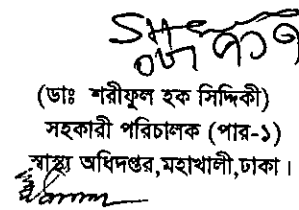 (ডাঃ শরীফুল হক সিদ্দিকী)
সহকারী পরিচালক (পার-১)
স্বাস্থ্য অধিদপ্তর,মহাখালী,ঢাকা।